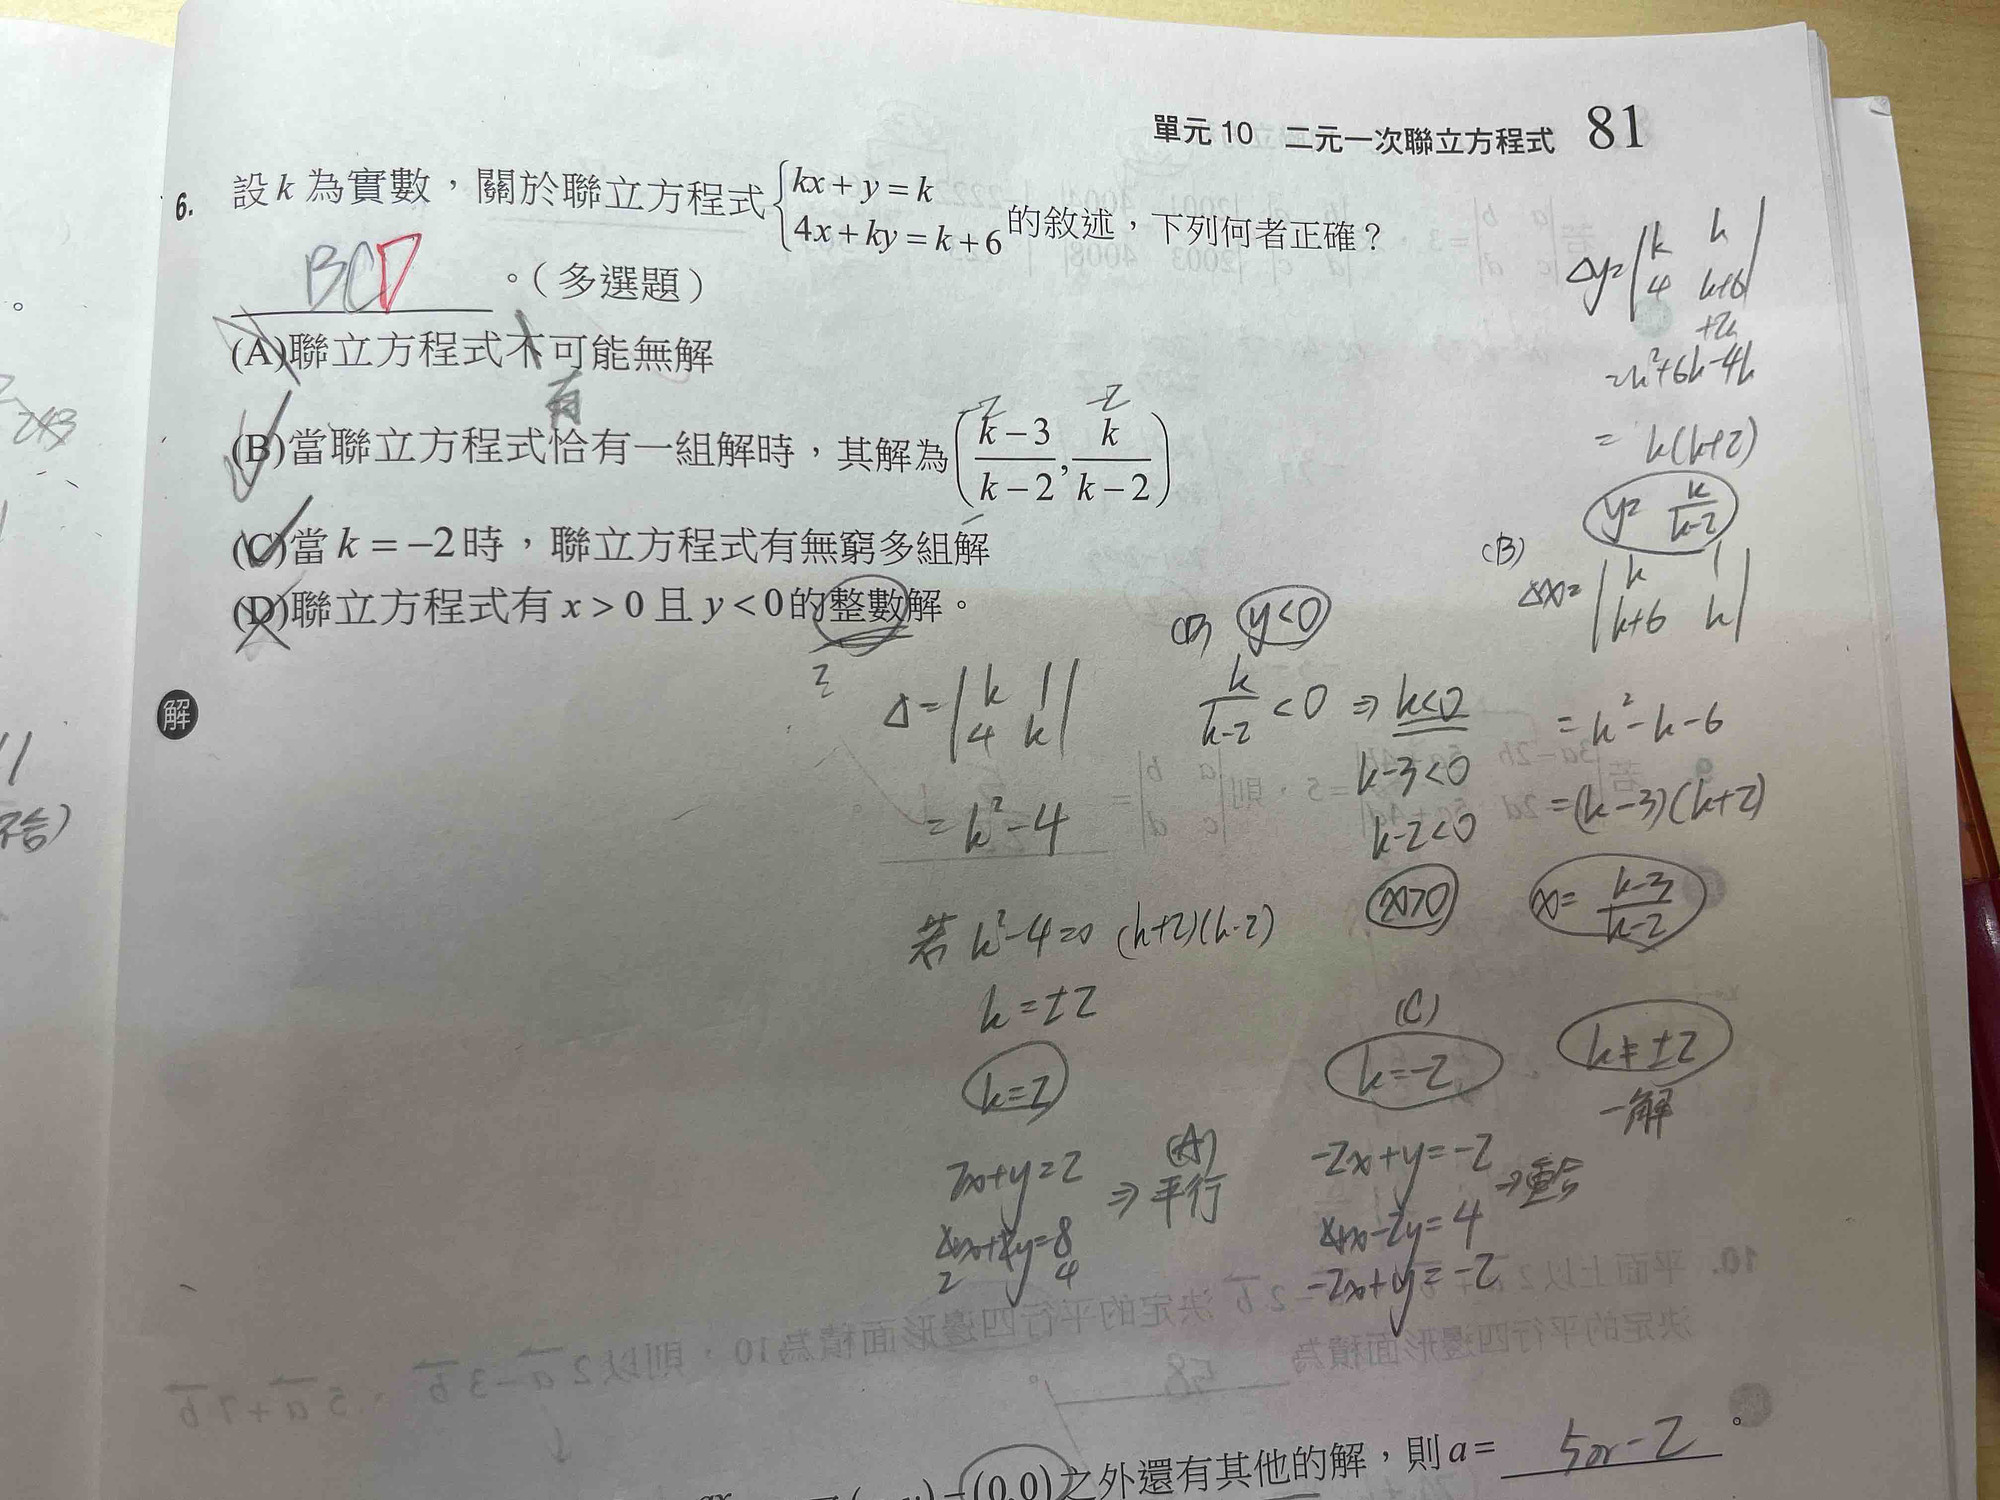 單元 10 二元一次聯立方程式 81
6. 設 k 為實數，關於聯立方程式 { kx + y = k
4x + ky = k + 6 的敘述，下列何者正確？
BCD 。（多選題）
(A)聯立方程式不可能無解
有
(B)當聯立方程式恰有一組解時，其解為 ( k-3 / k-2 , k / k-2 )
-2 -2
(C)當 k = -2 時，聯立方程式有無窮多組解
(D)聯立方程式有 x > 0 且 y < 0 的整數解。
Z
解
Δ = | k 1 |
| 4 k |
= k² - 4
若 k² - 4 = 0 (k+2)(k-2)
k = ±2
k = 2
2x + y = 2
4x + 2y = 8
2 4
(A)
⇒ 平行
(D) y < 0
k / k-2 < 0 ⇒ k < 2
k - 3 < 0
k - 2 < 0
x > 0
(C)
k = -2
-2x + y = -2
4x - 2y = 4
-2x + y = -2
⇒ 重合
Δy = | k k |
| 4 k+6 |
+2k
= k² + 6k - 4k
= k(k+2)
y = k / k-2
(B)
Δx = | k 1 |
| k+6 k |
= k² - k - 6
= (k-3)(k+2)
x = k-3 / k-2
k ≠ ±2
一解
(0,0) 之外還有其他的解，則 a = 。